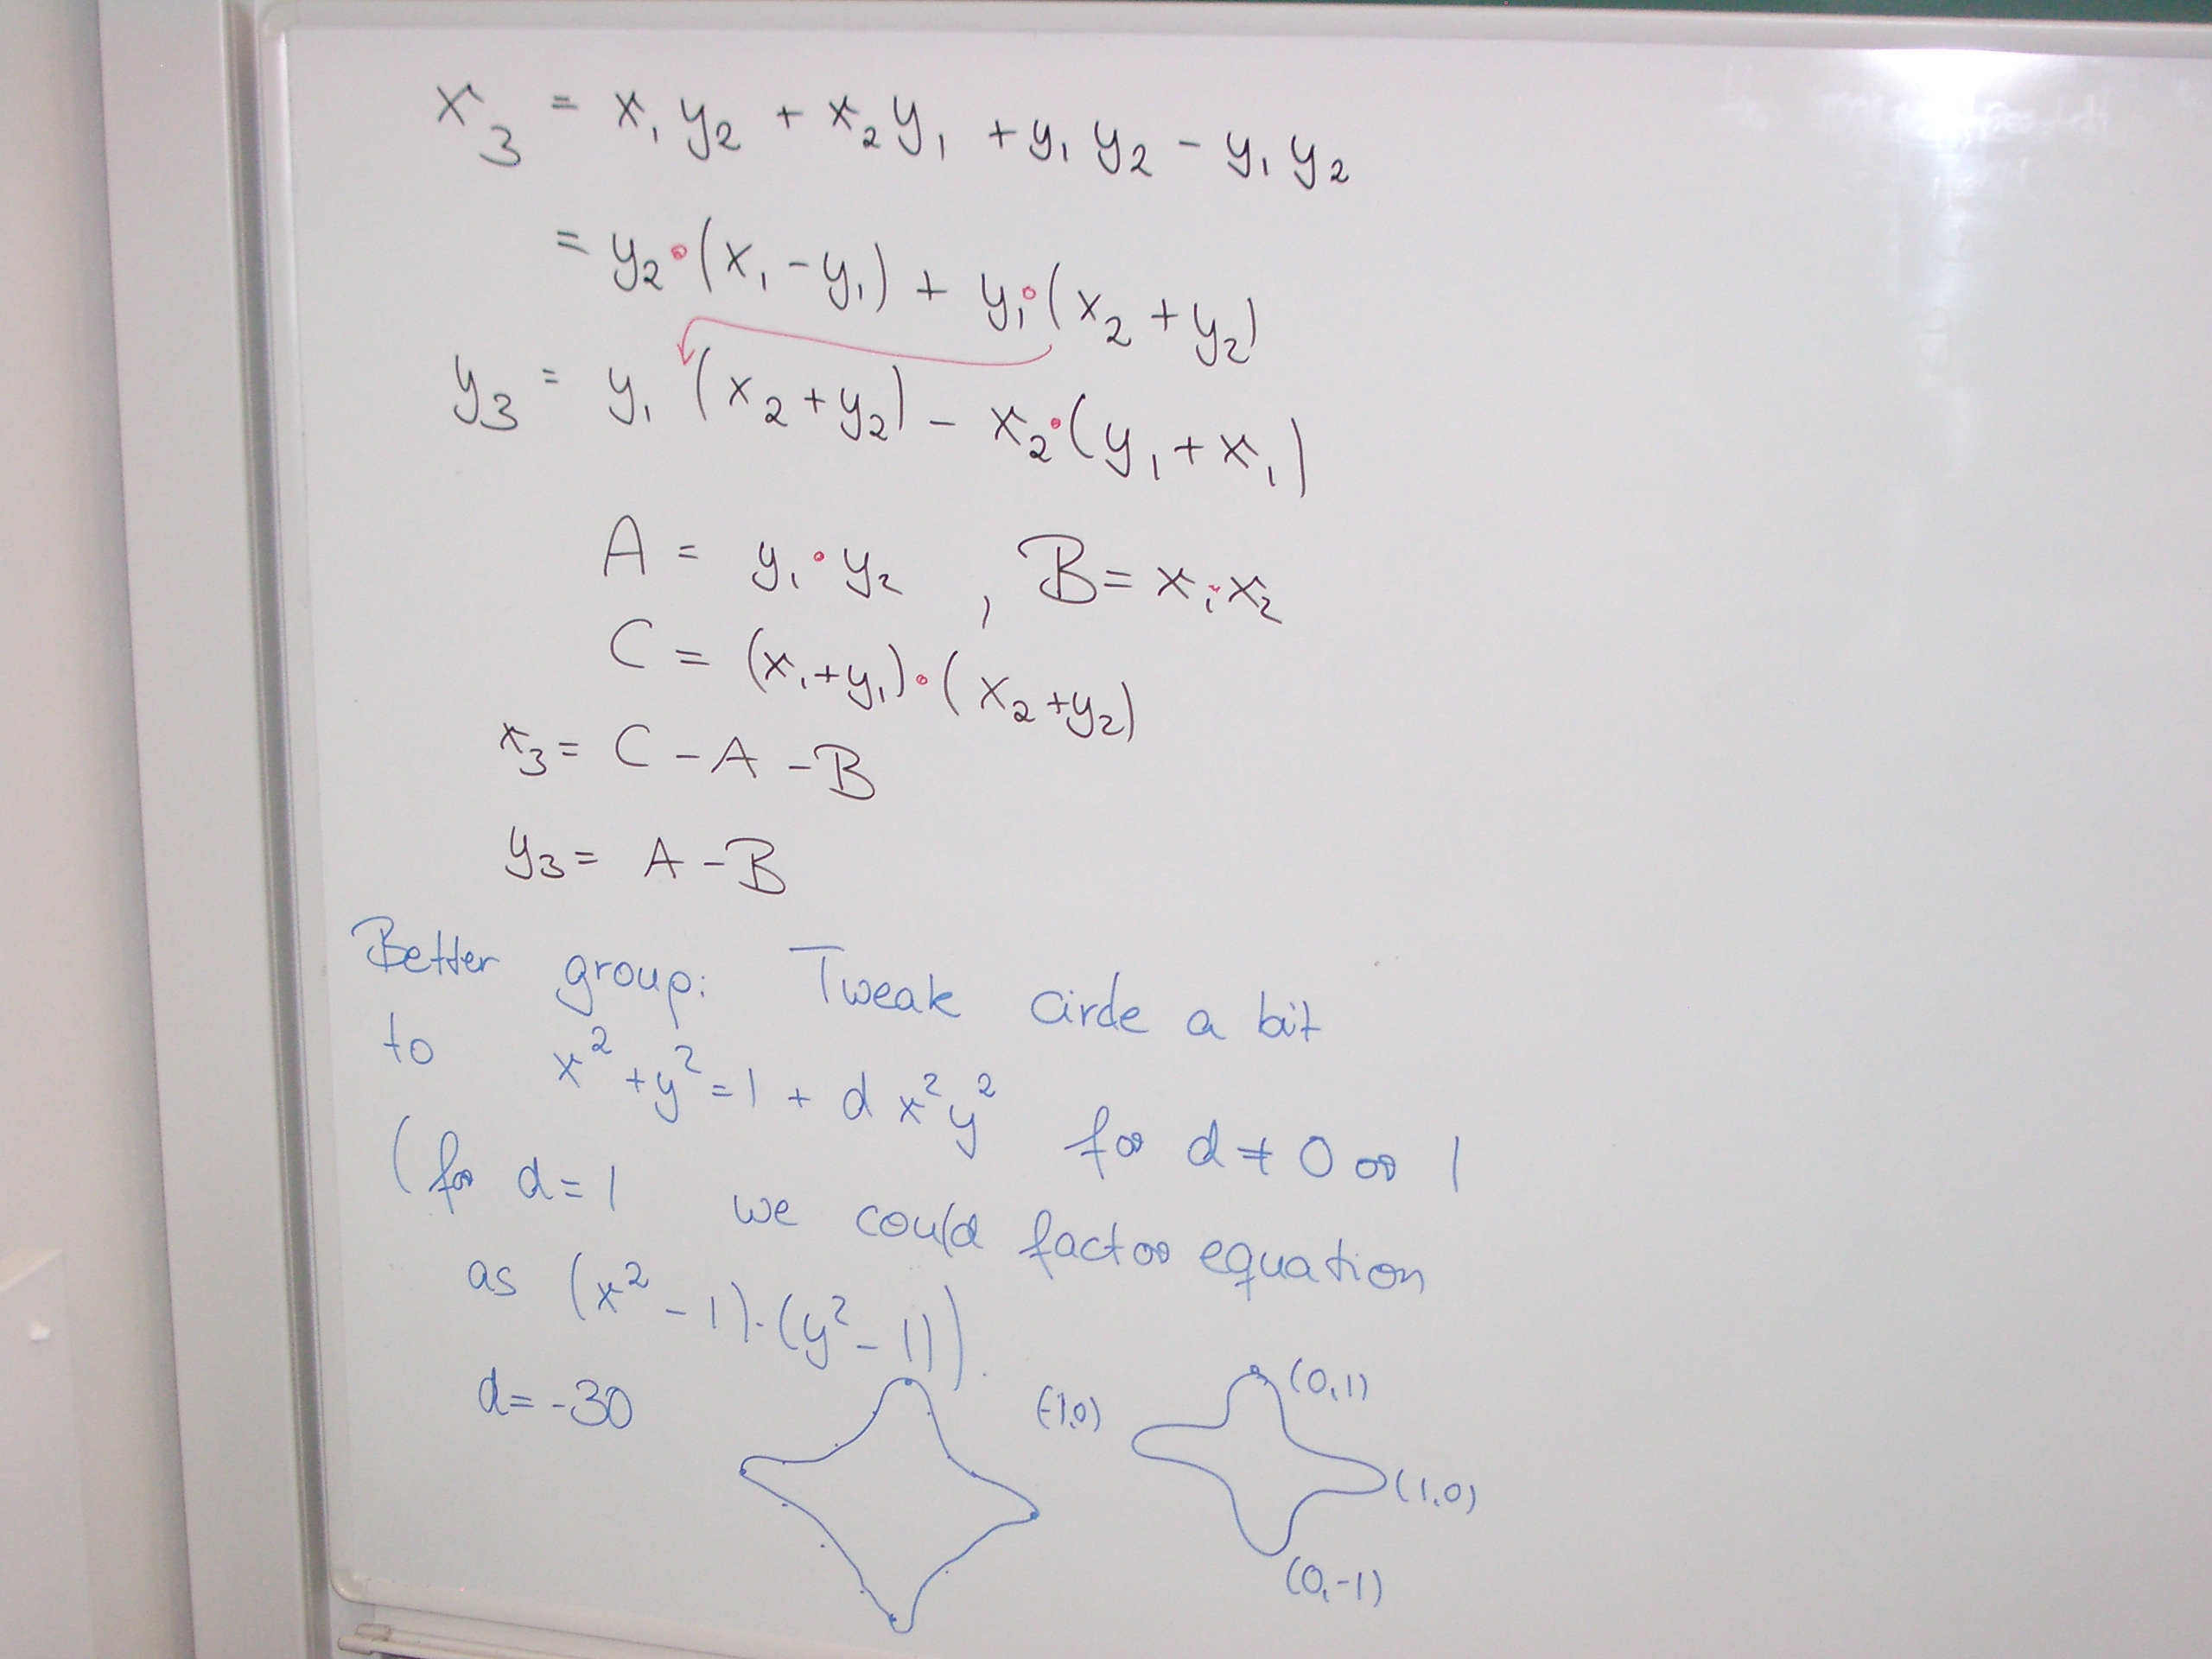 x₃ = x₁y₂ + x₂y₁ + y₁y₂ - y₁y₂
= y₂•(x₁-y₁) + y₁•(x₂+y₂)
y₃ = y₁(x₂+y₂) - x₂•(y₁+x₁)
A = y₁•y₂ , B = x₁•x₂
C = (x₁+y₁)•(x₂+y₂)
x₃ = C - A - B
y₃ = A - B
Better group: Tweak circle a bit
to x²+y²=1+dx²y² for d≠0 or 1
(for d=1 we could factor equation
as (x²-1)·(y²-1)).
d=-30
(0,1)
(-1,0)
(1,0)
(0,-1)